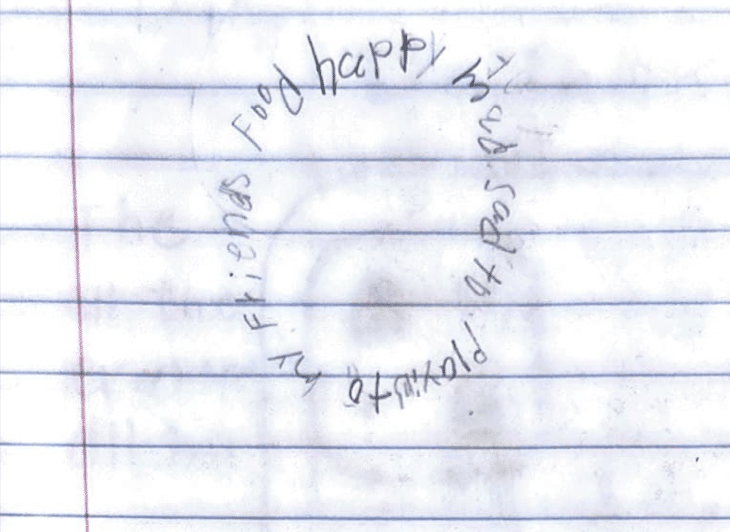 happy my and sad to playing to my friends Food